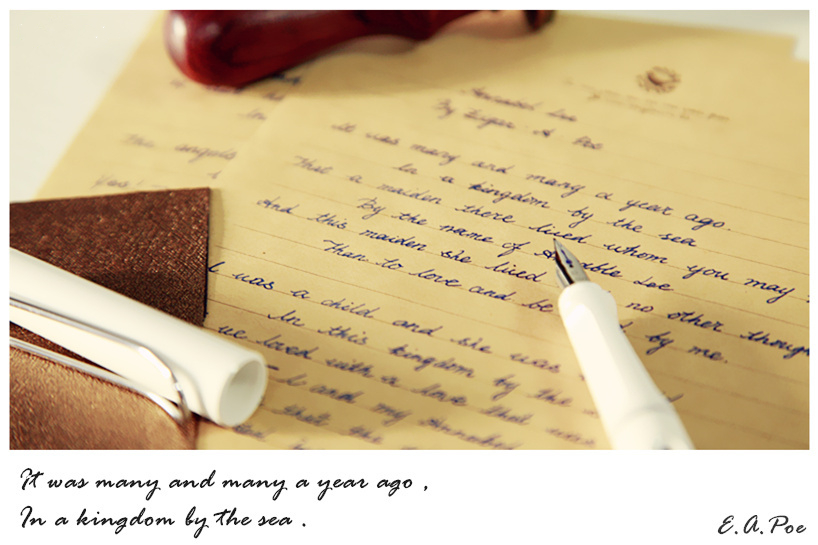 The angels
Yes!
By Edgar A Poe
It was many and many a year ago.
In a kingdom by the sea
That a maiden there lived whom you may
By the name of Lee
And this maiden she lived no other
Than to love and be by me.
I was a child and she was
In this kingdom by the
we loved with a love that
I and my
It was many and many a year ago ,
In a kingdom by the sea .
E.A.Poe